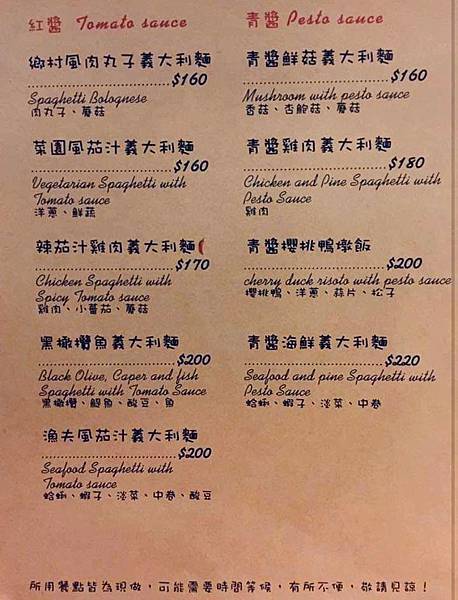 紅醬 Tomato sauce
鄉村風肉丸子義大利麵
$160
Spaghetti Bolognese
肉丸子、蘑菇
菜園風茄汁義大利麵
$160
Vegetarian Spaghetti with
Tomato sauce
洋蔥、鮮蔬
辣茄汁雞肉義大利麵
$170
Chicken Spaghetti with
Spicy Tomato sauce
雞肉、小蕃茄、蘑菇
黑橄欖魚義大利麵
$200
Black Olive, Caper and fish
Spaghetti with Tomato Sauce
黑橄欖、鯷魚、酸豆、魚
漁夫風茄汁義大利麵
$200
Seafood Spaghetti with
Tomato sauce
蛤蜊、蝦子、淡菜、中卷、酸豆
青醬 Pesto sauce
青醬鮮菇義大利麵
$160
Mushroom with pesto sauce
香菇、杏鮑菇、蘑菇
青醬雞肉義大利麵
$180
Chicken and Pine Spaghetti with
Pesto Sauce
雞肉
青醬櫻桃鴨燉飯
$200
cherry duck risoto with pesto sauce
櫻桃鴨、洋蔥、蒜片、松子
青醬海鮮義大利麵
$220
Seafood and pine Spaghetti with
Pesto Sauce
蛤蜊、蝦子、淡菜、中卷
所用餐點皆為現做，可能需要時間等候，有所不便，敬請見諒！